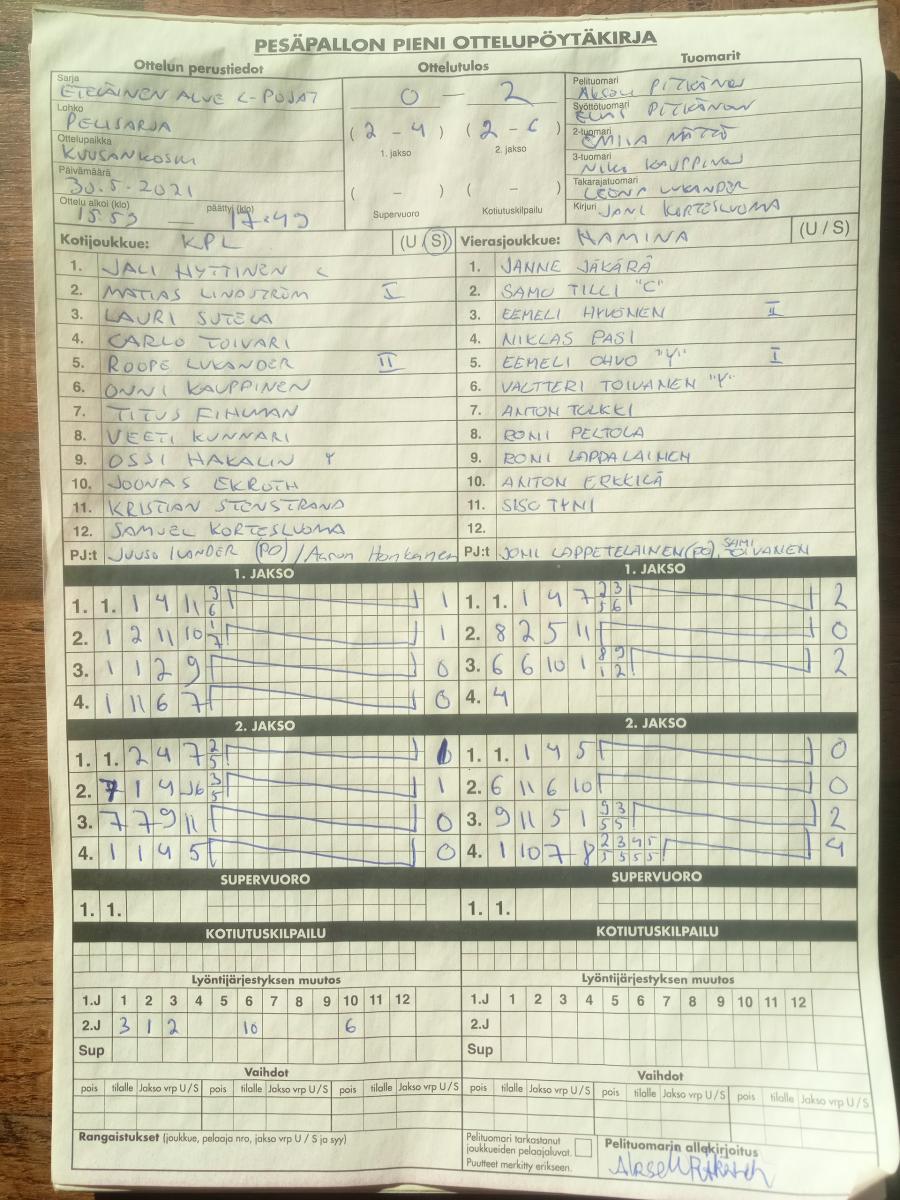 PESÄPALLON PIENI OTTELUPÖYTÄKIRJA
Ottelun perustiedot
Ottelutulos
Tuomarit
Sarja
ETELÄINEN ALUE C-POJAT
Lohko
PELISARJA
Ottelupaikka
KUUSANKOSKI
Päivämäärä
30.5.2021
Ottelu alkoi (klo) 15.59 — päättyi (klo) 17.49
0 — 2
(2 - 4) (2 - 6)
1. jakso 2. jakso
( - ) ( - )
Supervuoro Kotiutuskilpailu
Pelituomari PITKÄNEN
Syöttötuomari PITKÄNEN
2-tuomari EMILIA MÄTTÖ
3-tuomari NIKO KAUPPINEN
Takarajatuomari LEENA LUKANDER
Kirjuri JANI KORTESLUOMA
Kotijoukkue: KPL (U / S)
1. JALI HYTTINEN C
2. MATIAS LINDSTRÖM I
3. LAURI SUTELA
4. CARLO TOIVARI
5. ROOPE LUKANDER II
6. ONNI KAUPPINEN
7. TITUS FIHLMAN
8. VEETI KUNNARI
9. OSSI HAKALIN Y
10. JOONAS EKROTH
11. KRISTIAN STENSTRAND
12. SAMUEL KORTESLUOMA
PJ:t JUUSO IVANDER (PO) / Aaron Honkanen
Vierasjoukkue: HAMINA (U / S)
1. JANNE JÄKÄRÄ
2. SAMU TILLI "C"
3. EEMELI HYVÖNEN II
4. NIKLAS PASI
5. EEMELI OHVO "Y" I
6. VALTTERI TOIVANEN "Y"
7. ANTON TULKKI
8. RONI PELTOLA
9. RONI LAPPALAINEN
10. ANTON ERKKILÄ
11. SISU TYNI
12.
PJ:t JONI LAPPETELAINEN (PO), SAMI TOIVANEN
1. JAKSO
1. 1. 1 4 11 3 6 1
2. 1 2 11 10 1 7 1
3. 1 1 2 9 0
4. 1 11 6 7 0
1. JAKSO
1. 1. 1 4 7 2 3 5 6 2
2. 8 2 5 11 0
3. 6 6 10 1 8 9 1 2 2
4. 4
2. JAKSO
1. 1. 2 4 7 2 5
2. 7 1 4 3 5 1
3. 7 7 9 11 0
4. 1 1 4 5 0
2. JAKSO
1. 1. 1 4 5 0
2. 6 11 6 10 0
3. 9 11 5 1 9 3 5 5 2
4. 1 10 7 8 2 3 4 5 5 5 5 5 4
SUPERVUORO
1. 1.
SUPERVUORO
1. 1.
KOTIUTUSKILPAILU
KOTIUTUSKILPAILU
Lyöntijärjestyksen muutos
1.J 1 2 3 4 5 6 7 8 9 10 11 12
2.J 3 1 2 10 6
Sup
Lyöntijärjestyksen muutos
1.J 1 2 3 4 5 6 7 8 9 10 11 12
2.J
Sup
Vaihdot
pois tilalle Jakso vrp U / S pois tilalle Jakso vrp U / S pois tilalle Jakso vrp U / S
Vaihdot
pois tilalle Jakso vrp U / S pois tilalle Jakso vrp U / S pois tilalle Jakso vrp U / S
Rangaistukset (joukkue, pelaaja nro, jakso vrp U / S ja syy)
Pelituomari tarkastanut
joukkueiden pelaajaluvat.
Puutteet merkitty erikseen.
Pelituomarin allekirjoitus